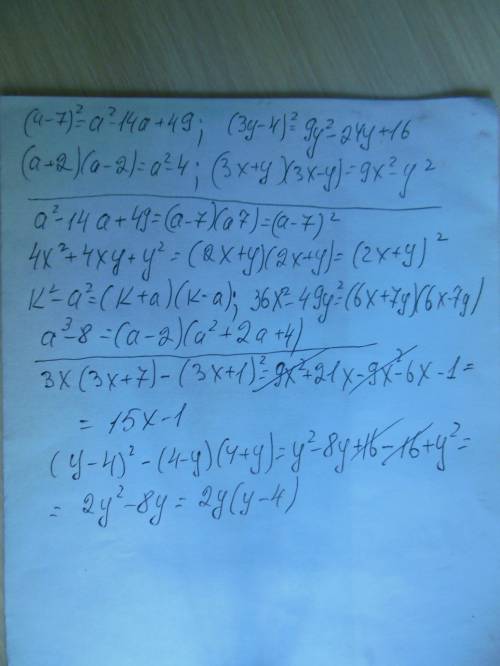 (a-7)²=a²-14a+49; (3y-4)²=9y²-24y+16
(a+2)(a-2)=a²-4; (3x+y)(3x-y)=9x²-y²
a²-14a+49=(a-7)(a7)=(a-7)²
4x²+4xy+y²=(2x+y)(2x+y)=(2x+y)²
k²-a²=(k+a)(k-a); 36x²-49y²=(6x+7y)(6x-7y)
a³-8=(a-2)(a²+2a+4)
3x(3x+7)-(3x+1)²=9x²+21x-9x²-6x-1=
=15x-1
(y-4)²-(4-y)(4+y)=y²-8y+16-16+y²=
=2y²-8y=2y(y-4)